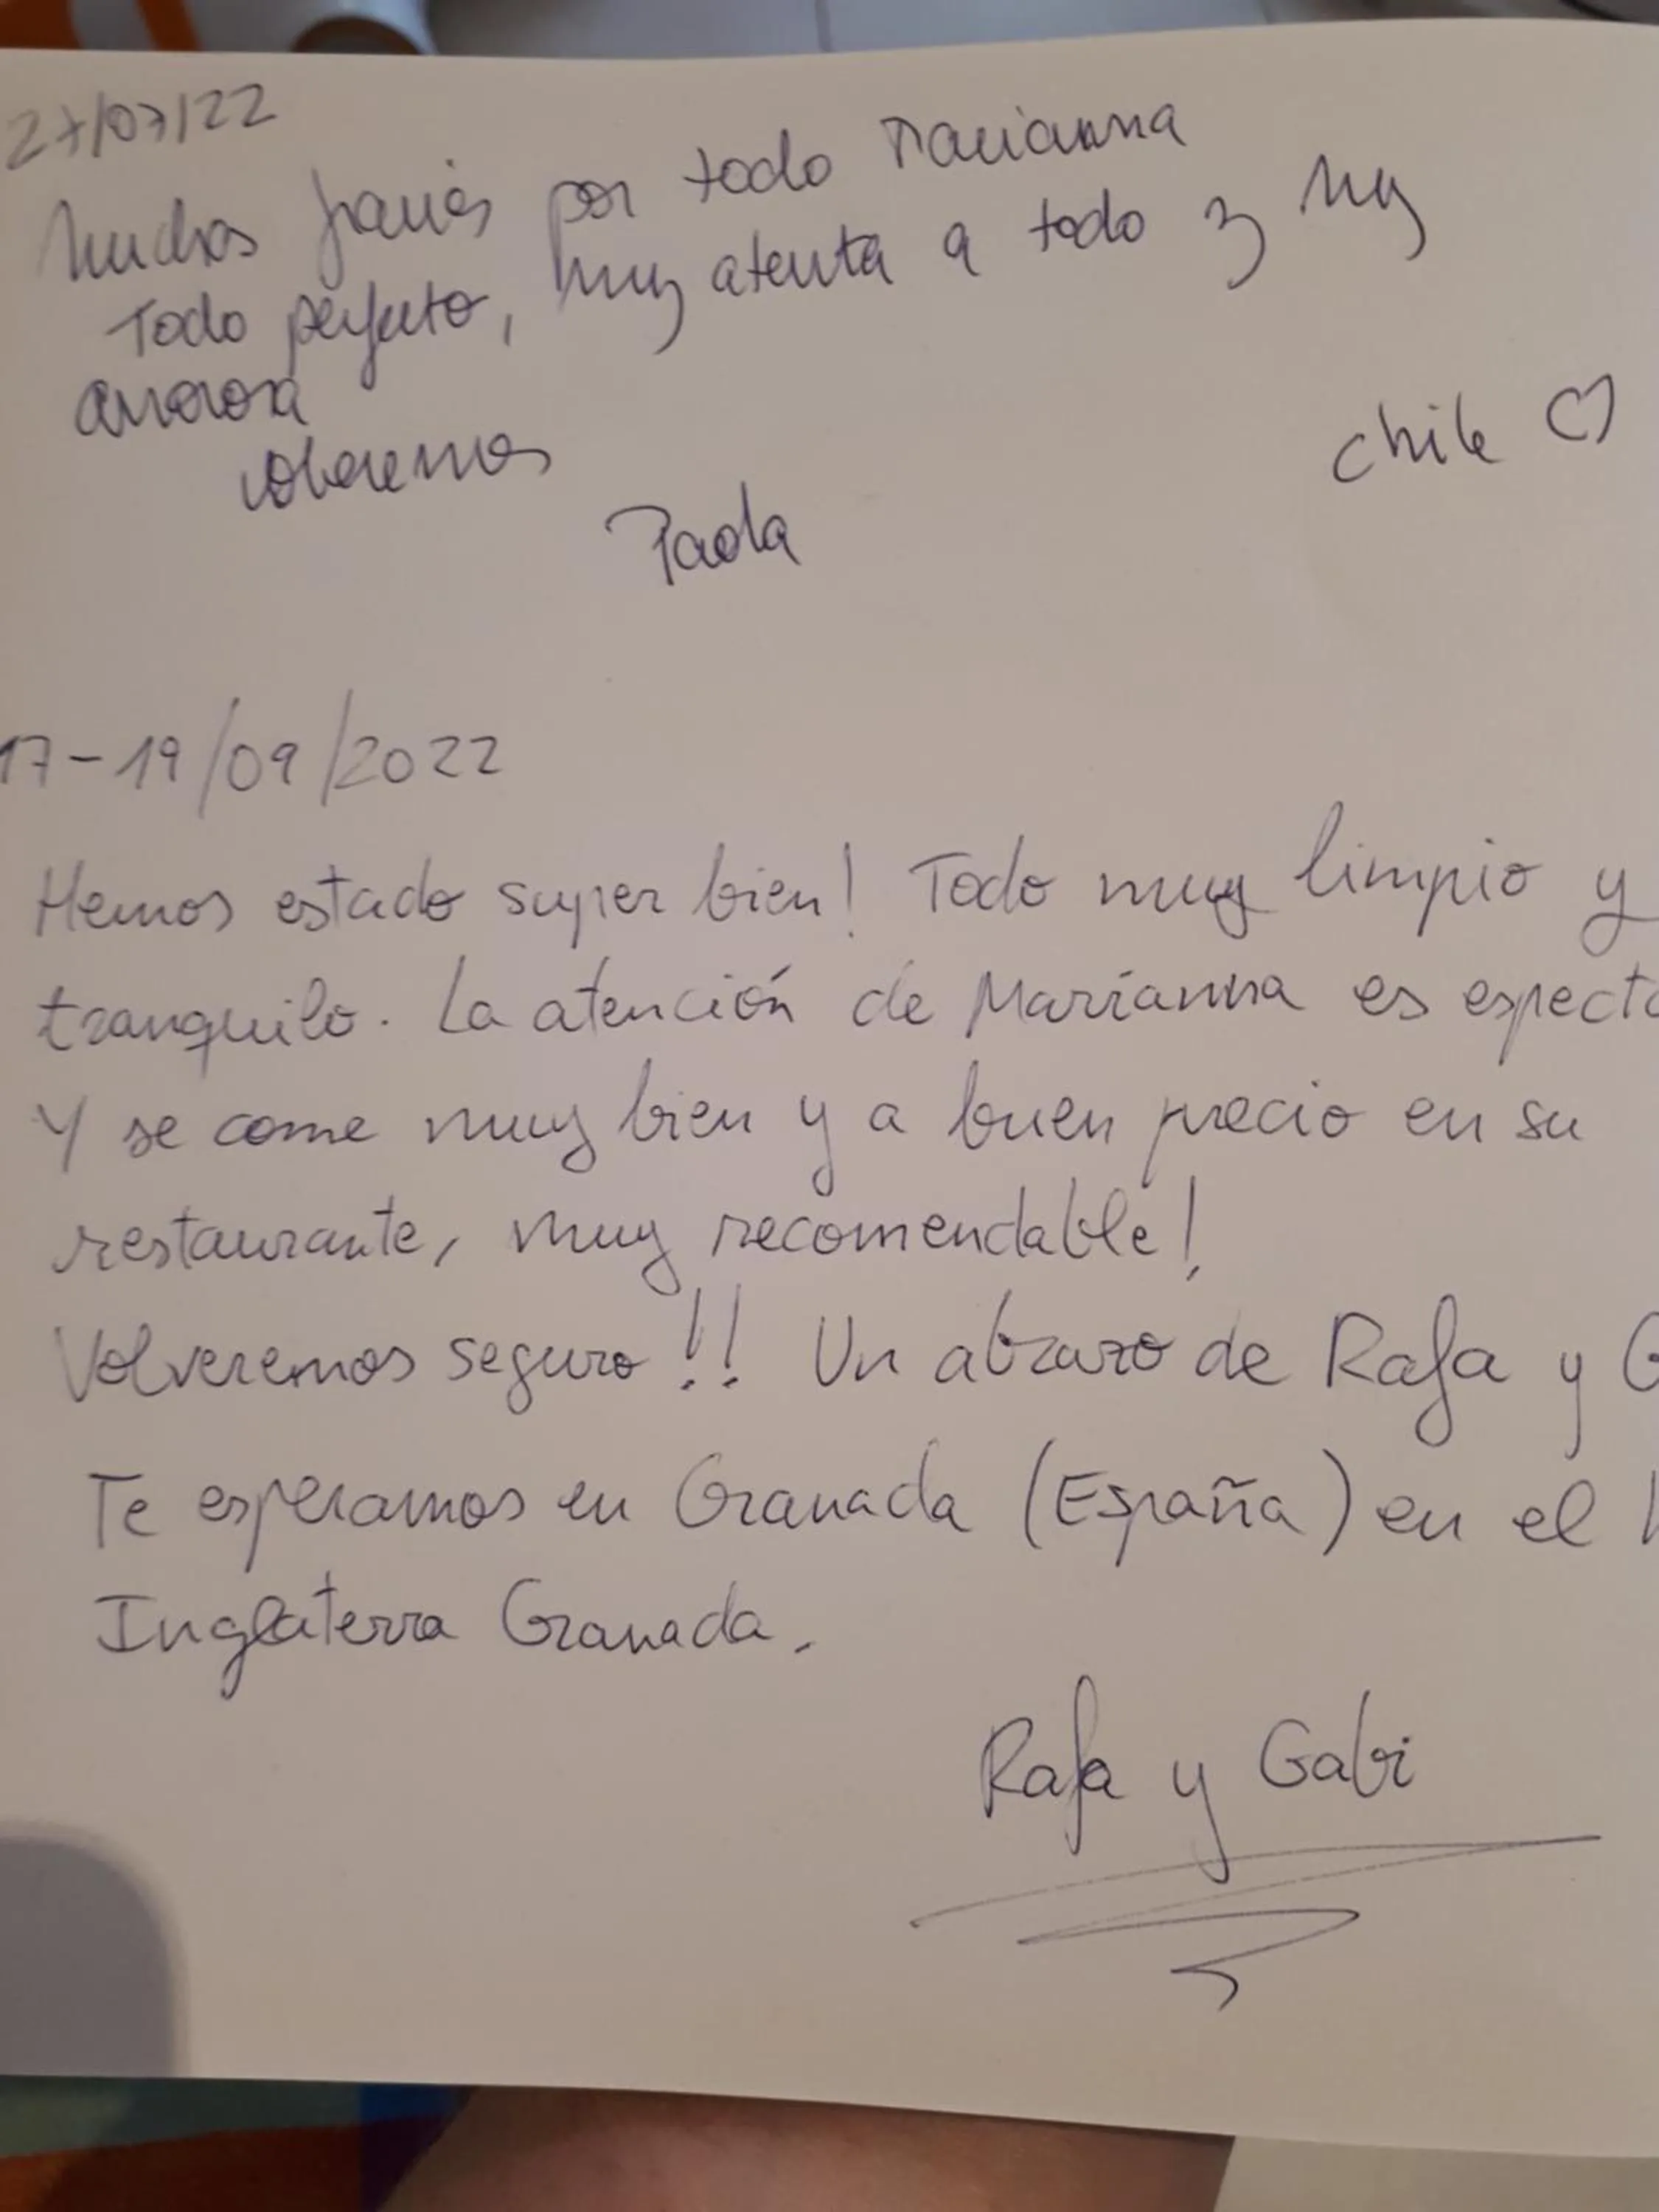 27/07/22
Muchas gracias por todo Marianna
Todo perfecto, muy atenta a todo y muy
amorosa
volveremos
Chile ♡
Paola
17-19/09/2022
Hemos estado super bien! Todo muy limpio y
tranquilo. La atención de Marianna es especta
Y se come muy bien y a buen precio en su
restaurante, muy recomendable!
Volveremos seguro!! Un abrazo de Rafa y G
Te esperamos en Granada (España) en el
Inglaterra Granada.
Rafa y Gabi